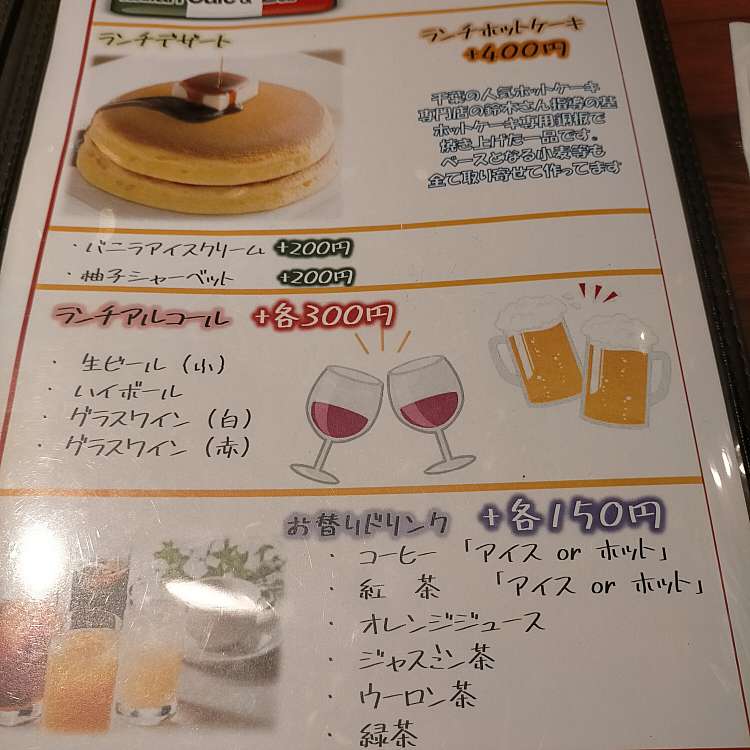 Cafe &
ランチデザート
ランチホットケーキ
+400円
千葉の人気ホットケーキ
専門店の鈴木さん指導の基
ホットケーキ専用銅板で
焼き上げた一品です。
ベースとなる小麦等も
全て取り寄せて作ってます
・バニラアイスクリーム +200円
・柚子シャーベット +200円
ランチアルコール +各300円
・生ビール（小）
・ハイボール
・グラスワイン（白）
・グラスワイン（赤）
お替りドリンク +各150円
・コーヒー「アイス or ホット」
・紅 茶 「アイス or ホット」
・オレンジジュース
・ジャスミン茶
・ウーロン茶
・緑茶